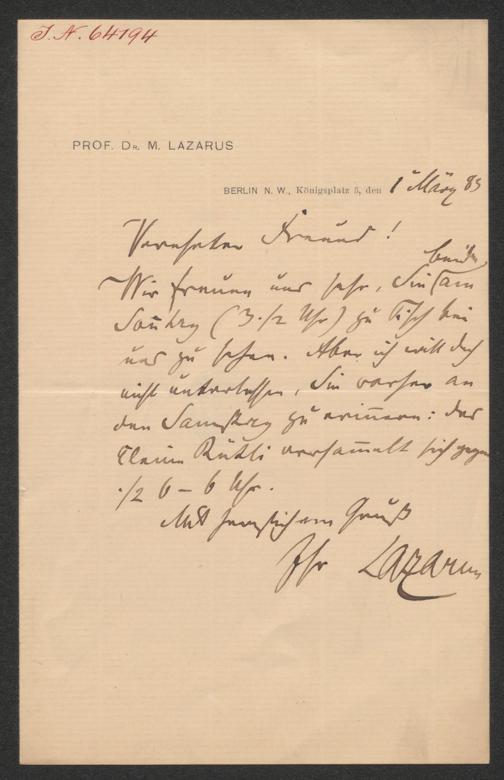 J. N. 64194
PROF. DR. M. LAZARUS
BERLIN N. W., Königsplatz 5, den 1 März 85
Verehrter Freund!
beide
Wir freuen uns sehr, Sie am
Sonntag (3 ½ Uhr) zu Tisch bei
uns zu sehen. Aber ich will doch
nicht unterlassen, Sie vorher an
den Samstag zu erinnern: das
kleine Rütli versammelt sich gegen
½ 6 – 6 Uhr.
Mit herzlichem Gruß
Ihr Lazarus